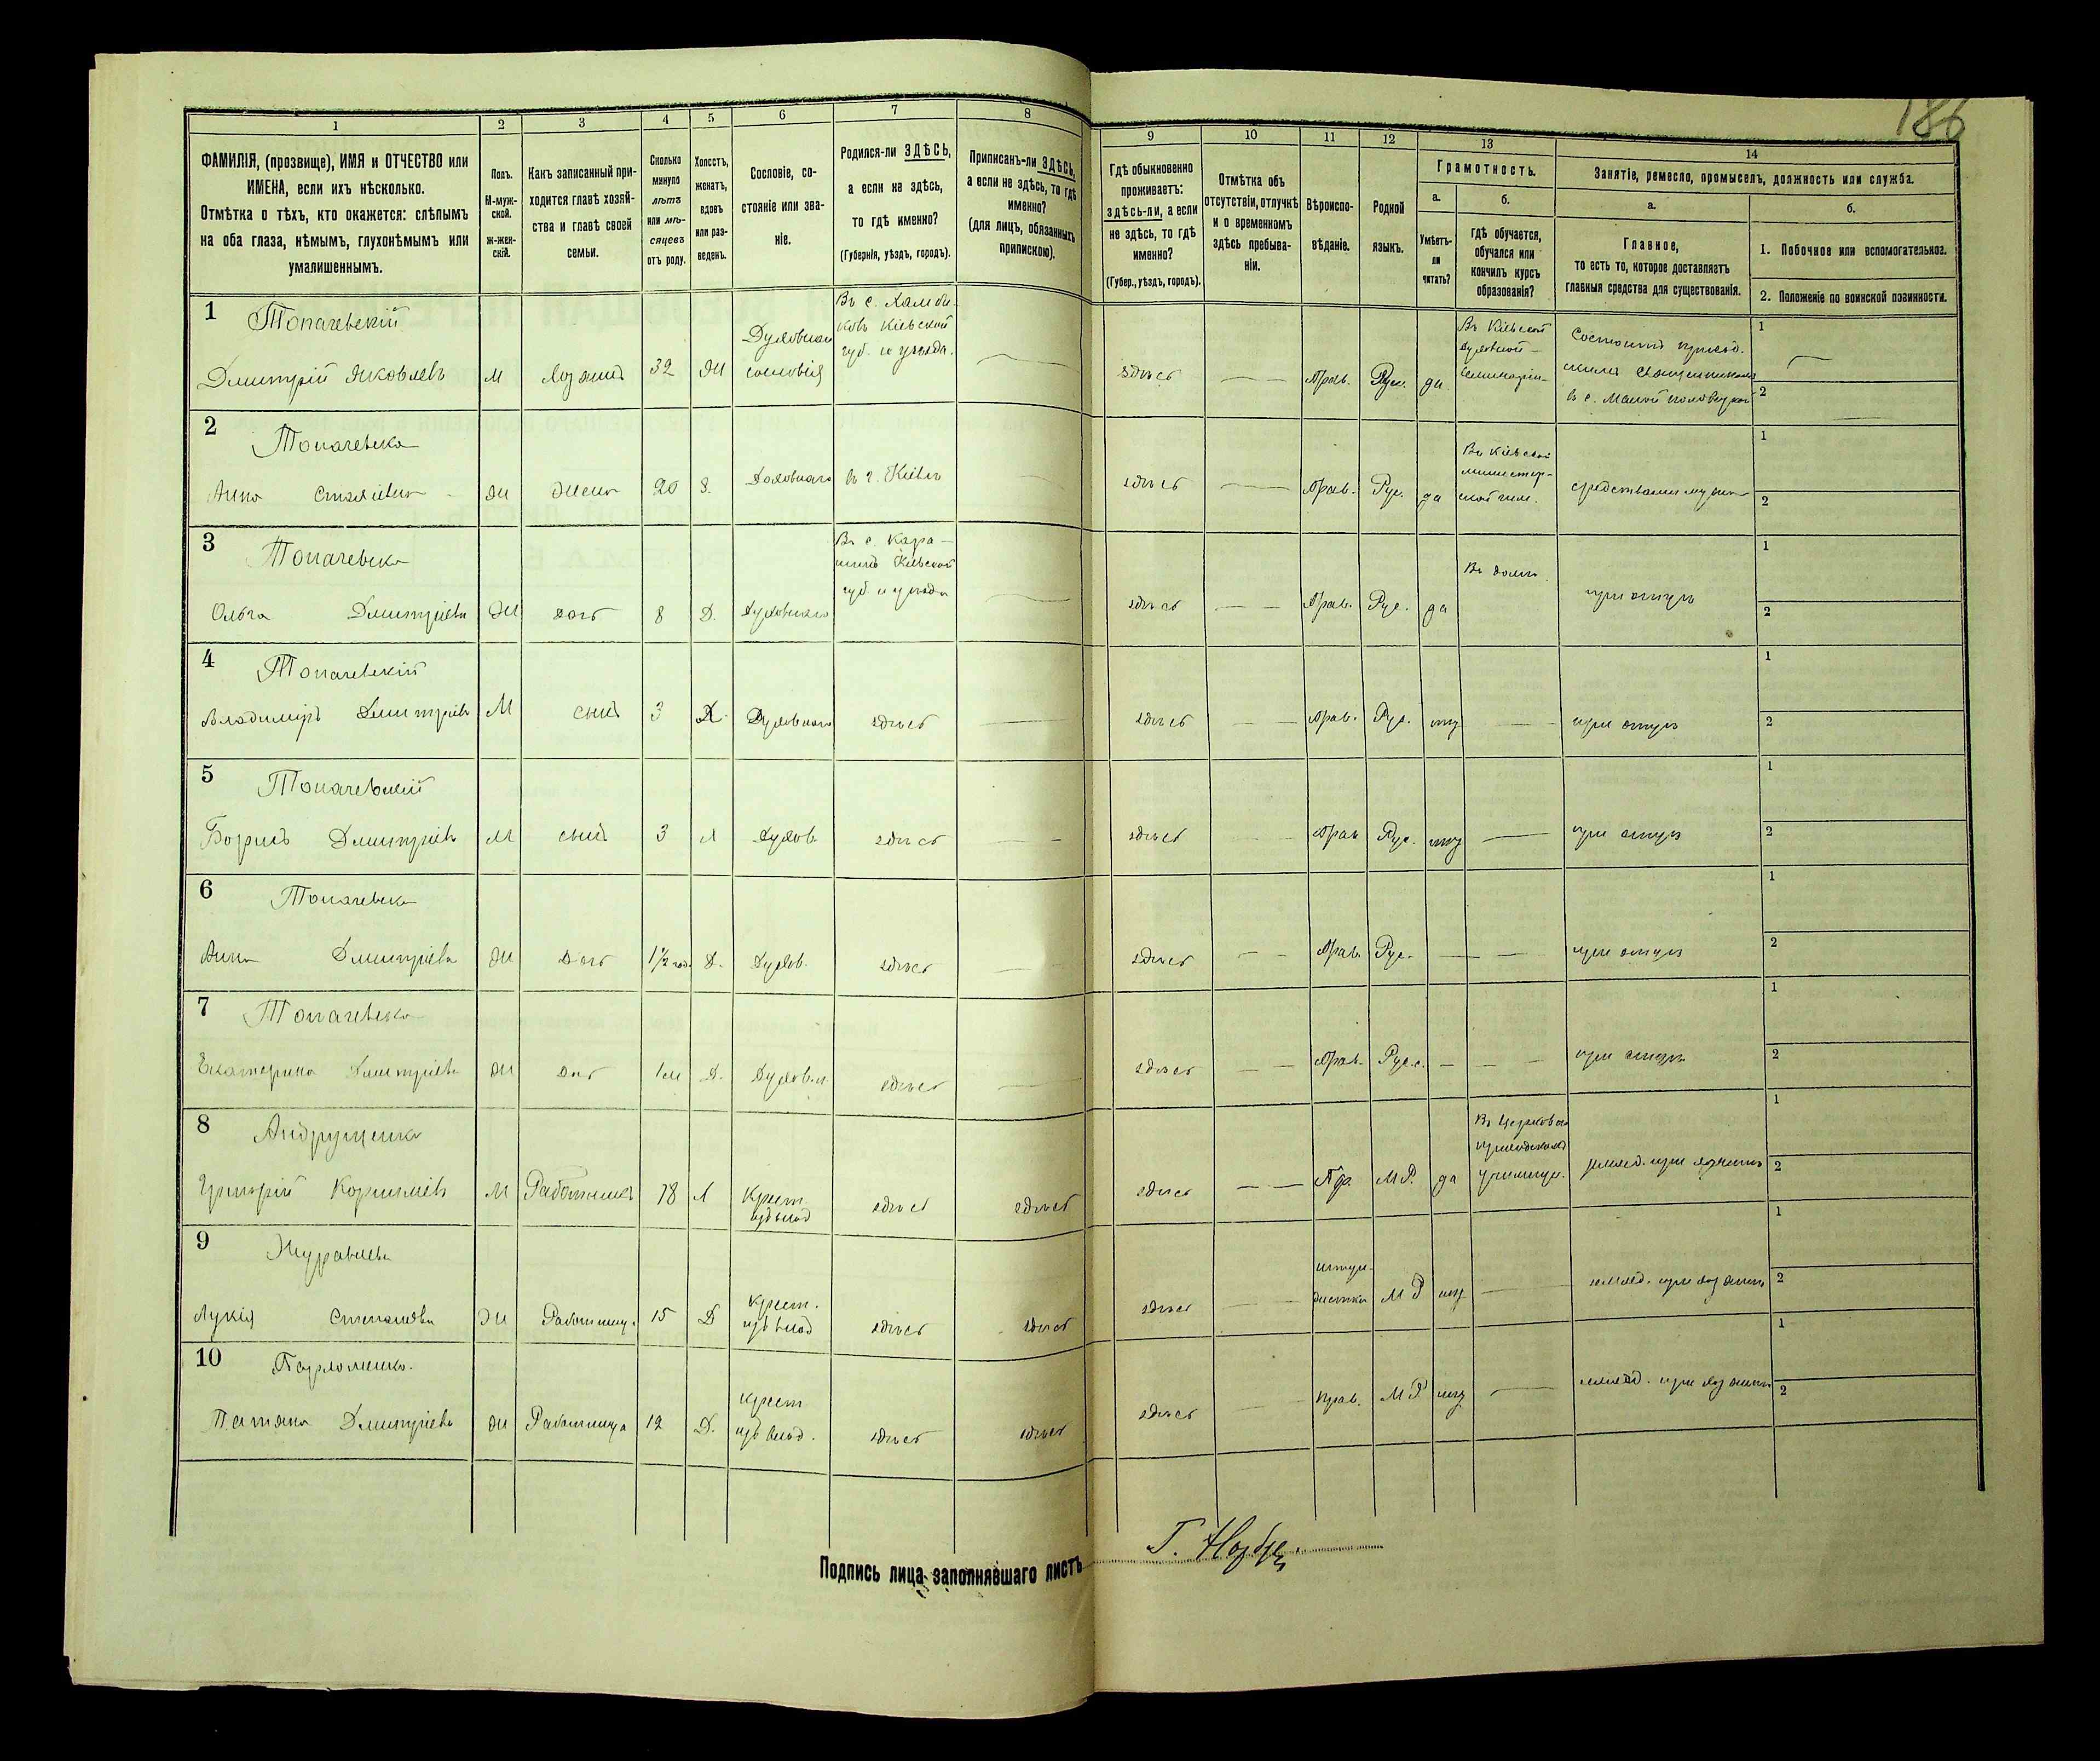 186
1
2
3
4
5
6
7
8
9
10
11
12
13
14
ФАМИЛІЯ, (прозвище), ИМЯ и ОТЧЕСТВО или
ИМЕНА, если ихъ нѣсколько.
Отмѣтка о тѣхъ, кто окажется: слѣпымъ
на оба глаза, нѣмымъ, глухонѣмымъ или
умалишеннымъ.
Полъ.
М-муж-
ской.
ж-жен-
скій.
Какъ записанный при-
ходится главѣ хозяй-
ства и главѣ своей
семьи.
Сколько
минуло
лѣтъ
или мѣ-
сяцевъ
отъ роду.
Холостъ,
женатъ,
вдовъ
или раз-
веденъ.
Сословіе, со-
стояніе или зва-
ніе.
Родился-ли ЗДѢСЬ,
а если не здѣсь,
то гдѣ именно?
(Губернія, уѣздъ, городъ).
Приписанъ-ли ЗДѢСЬ,
а если не здѣсь, то гдѣ
именно?
(для лицъ, обязанныхъ
припискою).
Гдѣ обыкновенно
проживаетъ:
здѣсь-ли, а если
не здѣсь, то гдѣ
именно?
(Губер., уѣздъ, городъ).
Отмѣтка объ
отсутствіи, отлучкѣ
и о временномъ
здѣсь пребыва-
ніи.
Вѣроиспо-
вѣданіе.
Родной
языкъ.
Грамотность.
а.
Умѣетъ-
ли
читать?
б.
гдѣ обучается,
обучался или
кончилъ курсъ
образованія?
Занятіе, ремесло, промыселъ, должность или служба.
а.
Главное,
то есть то, которое доставляетъ
главныя средства для существованія.
б.
1. Побочное или вспомогательное.
2. Положеніе по воинской повинности.
1 Топачевскій
Дмитрій Яковлевъ М Хозяинъ 32 Ж
Духовнаго
сословія
губ. и уѣзда.
здѣсь Прав. Рус. да
Въ Кіевской
духовной
семинаріи
Состоитъ приход.
скимъ священникомъ
въ с. Малой Половецкой
1
2
2 Топачевска
Анна Ж Жена З. Духовнаго въ г. Кіевѣ
здѣсь Прав. Рус. да
Въ Кіевской
министер-
ской гим.
средствами мужа
1
2
3 Топачевска
Ольга Дмитріева Ж дочь 8 Д. Духовнаго
Въ с. Кара-
Кіевской
губ. и уѣзда
здѣсь Прав. Рус. да Въ домѣ. при отцѣ
1
2
4 Топачевскій
Владиміръ Дмитріевъ М сынъ 3 Х. Духовнаго здѣсь
здѣсь Прав. Рус. нѣт при отцѣ
1
2
5 Топачевскій
Борисъ Дмитріевъ М сынъ 3 Х Духов. здѣсь
здѣсь Прав Рус. нѣт при отцѣ
1
2
6 Топачевска
Анна Дмитріева Ж Дочь 1½ год. Д. Духов. здѣсь
здѣсь Прав. Рус. при отцѣ
1
2
7 Топачевска
Екатерина Дмитріева Ж Доч 1 м Д. Духов. здѣсь
здѣсь Прав. Рус. при отцѣ
1
2
8 Андрущенко
Григорій Корниліевъ М Работникъ 18 Х
Крест.
изъ влад
здѣсь здѣсь здѣсь Пр. М.Р. да
Въ Церковно
приходскомъ
училищѣ.
землед. при хозяинѣ
1
2
9 Журавлева
Лукія Степанова Ж Работница 15 Д
крест.
изъ влад
здѣсь здѣсь здѣсь
штун-
дистка М Р нѣт землед. при хозяинѣ
1
2
10
Татяна Дмитріева Ж Работница 12 Д.
крест
изъ влад.
здѣсь здѣсь здѣсь Прав. М Р нѣт землед. при хозяинѣ
1
2
Подпись лица заполнявшаго листъ